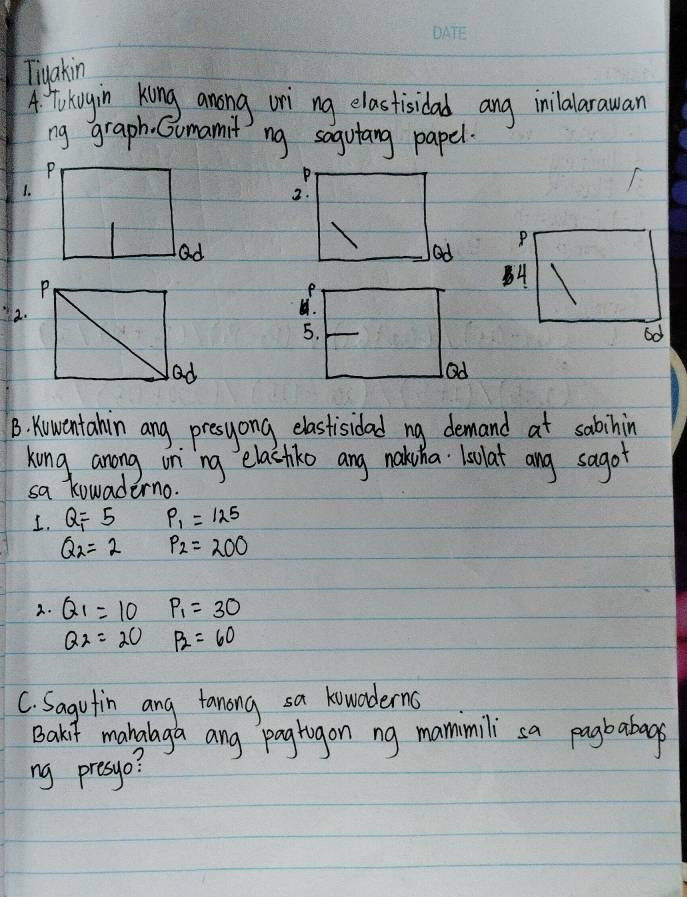 DATE
Tiyakin
A. Tukuyin kung anong uri ng elastisidad ang inilalarawan
ng graph. Gumamit ng sagutang papel.
1. P Qd
2. P Qd
4 P Qd
2. P Qd
5. P Qd
B. Kuwentahin ang presyong elastisidad ng demand at sabihin
kung anong uri ng elastiko ang nakuha. Isulat ang sagot
sa kuwaderno.
1. Q1= 5 P1 = 125
Q2= 2 P2= 200
2. Q1 = 10 P1= 30
Q2= 20 P2= 60
C. Sagutin ang tanong sa kuwaderno
Bakit mahalaga ang pagtugon ng mamimili sa pagbabago
ng presyo?